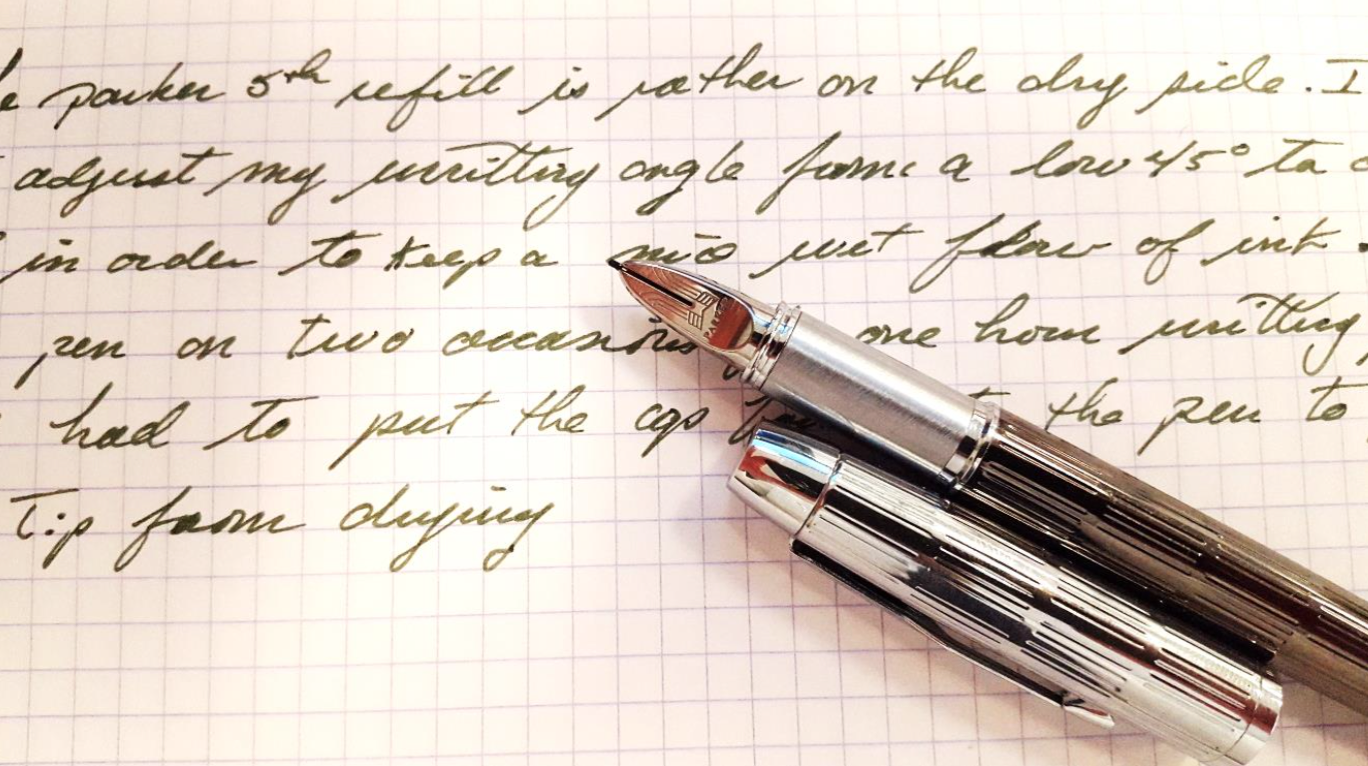 parker 5th refill is rather on the dry side. I
adjust my writting angle from a low 45° to
in order to keep a nice wet flow of ink
pen on two occasions one hour writting
had to put the cap the pen to
Tip from drying
PARKER